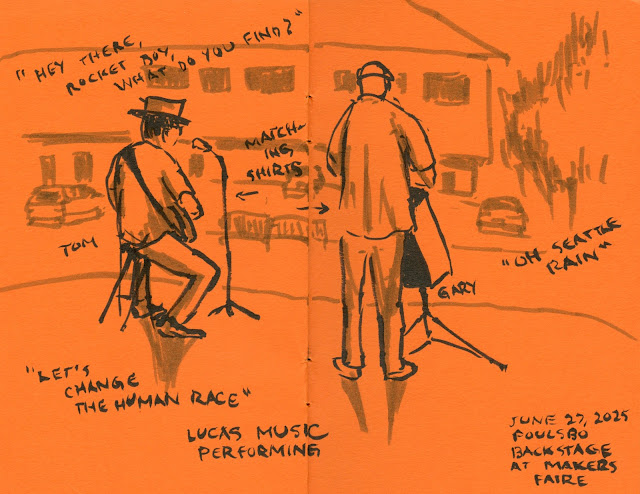 "HEY THERE,
ROCKET BOY,
WHAT DO YOU FIND?"
MATCH-
ING
SHIRTS
TOM
GARY
"OH SEATTLE
RAIN"
"LET'S
CHANGE
THE HUMAN RACE"
LUCAS MUSIC
PERFORMING
JUNE 27, 2025
POULSBO
BACKSTAGE
AT MAKERS
FAIRE